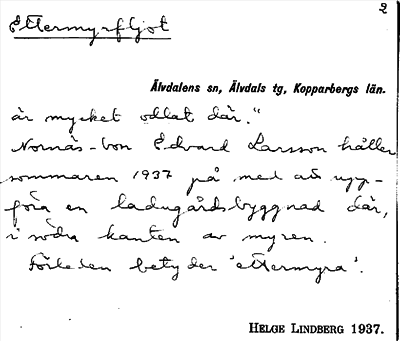 2
Ettermyrfljot
Älvdalens sn, Älvdals tg, Kopparbergs län.
är mycket odlat där."
Nornäs-bon Edvard Larsson håller
sommaren 1937 på med att upp-
föra en ladugårdsbyggnad där,
i södra kanten av myren.
Förleden betyder 'ettermyra'.
HELGE LINDBERG 1937.